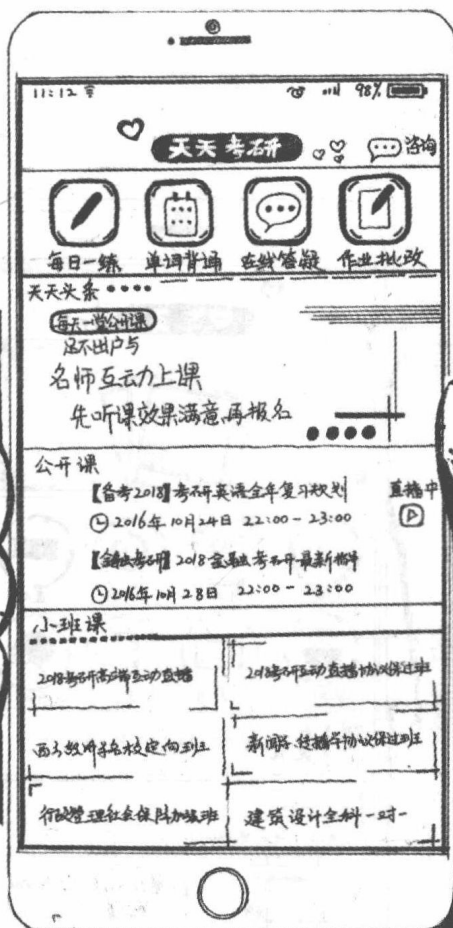 11:12
98%
天天考研
咨询
每日一练 单词背诵 在线答疑 作业批改
天天头条
每天一堂公开课
足不出户与
名师互动上课
先听课效果满意,再报名
公开课
【备考2018】考研英语全年复习规划
直播中
2016年10月24日 22:00-23:00
2018零基础考研最新指导
2016年10月28日 22:00-23:00
小班课
2018考研高端互动直播
2018考研互动直播协议保过班
名校定向班
新闻与传播学协议保过班
行政管理社会保障加强班
建筑设计全科一对一